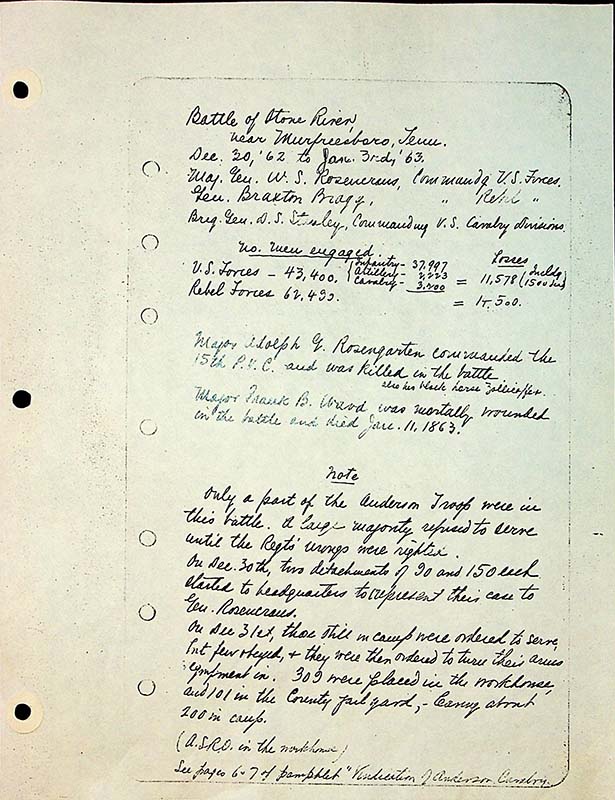 Battle of Stone River,
near Murfreesboro, Tenn.
Dec. 20, '62 to Jan. 3rd, '63.
Maj. Gen. W. S. Rosencrans, Commandg U.S. Forces.
Gen. Braxton Bragg, " Rebel "
Brig. Gen. D. S. Stanley, Commanding U.S. Cavalry divisions.
No. men engaged. Losses
U.S. Forces - 43,400. (Infantry - 37,997
Artillery - 2,223
Cavalry - 3,200 = 11,578 (Incldg 1500
Rebel Forces 62,490. = 15,500.
Major Adolph G. Rosengarten commanded the
15th P.V.C. and was killed in the battle
also his black horse Zollicoffer.
Major Frank B. Ward was mortally wounded
in the battle and died Jan. 11, 1863.
Note
Only a part of the Anderson Troop were in
this battle. A large majority refused to serve
until the Regts' wrongs were righted.
On Dec. 30th, two detachments of 90 and 150 each
started to headquarters to represent their case to
Gen. Rosencrans.
On Dec 31st, those still in camp were ordered to serve,
but few obeyed, & they were then ordered to turn their arms
equipment in. 309 were placed in the workhouse,
and 101 in the County jail yard, - leaving about
200 in camp.
(A.S.R.O. in the workhouse)
See pages 6-7 of pamphlet "Vindication of Anderson Cavalry.